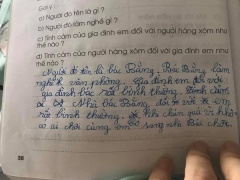 Gợi ý :
a) Người đó tên là gì ?
b) Người đó làm nghề gì ?
c) Tình cảm của gia đình em đối với người hàng xóm như thế nào ?
d) Tình cảm của người hàng xóm đối với gia đình em như thế nào ?
Người đó tên là bác Bằng. Bác Bằng làm
nghề văn phòng. Gia đình em đối với
gia đình bác rất bình thường. Tình cảm
Nhà bác Bằng đối với em
rất bình thường. khi chán quá vì không
có ai chơi cùng em sang nhà Bác chơi.
36